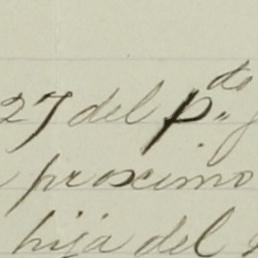 27 del p.do
proximo
hija del